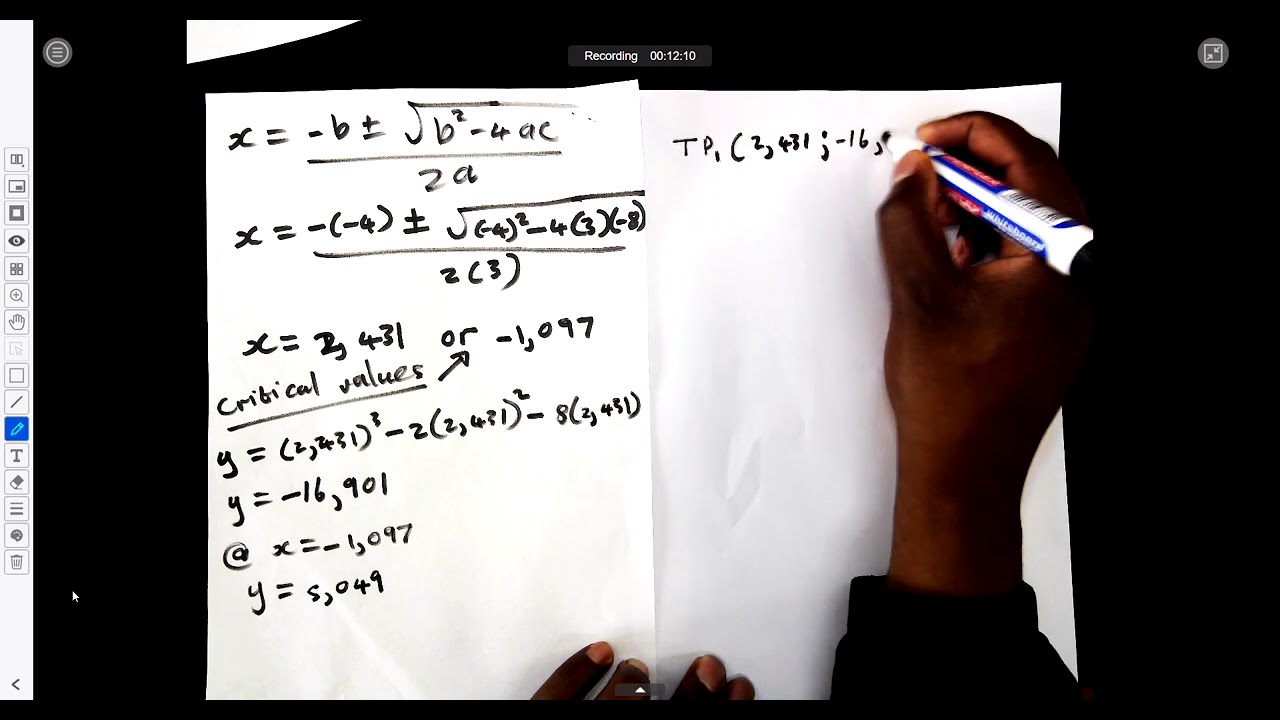 Recording 00:12:10
x = -b ± √b² - 4ac
2a
x = -(-4) ± √(-4)² - 4(3)(-8)
2(3)
x = 2,431 or -1,097
critical values
y = (2,431)³ - 2(2,431)² - 8(2,431)
y = -16,901
@ x = -1,097
y = 5,049
TP₁ (2,431 ; -16,
whiteboard
T